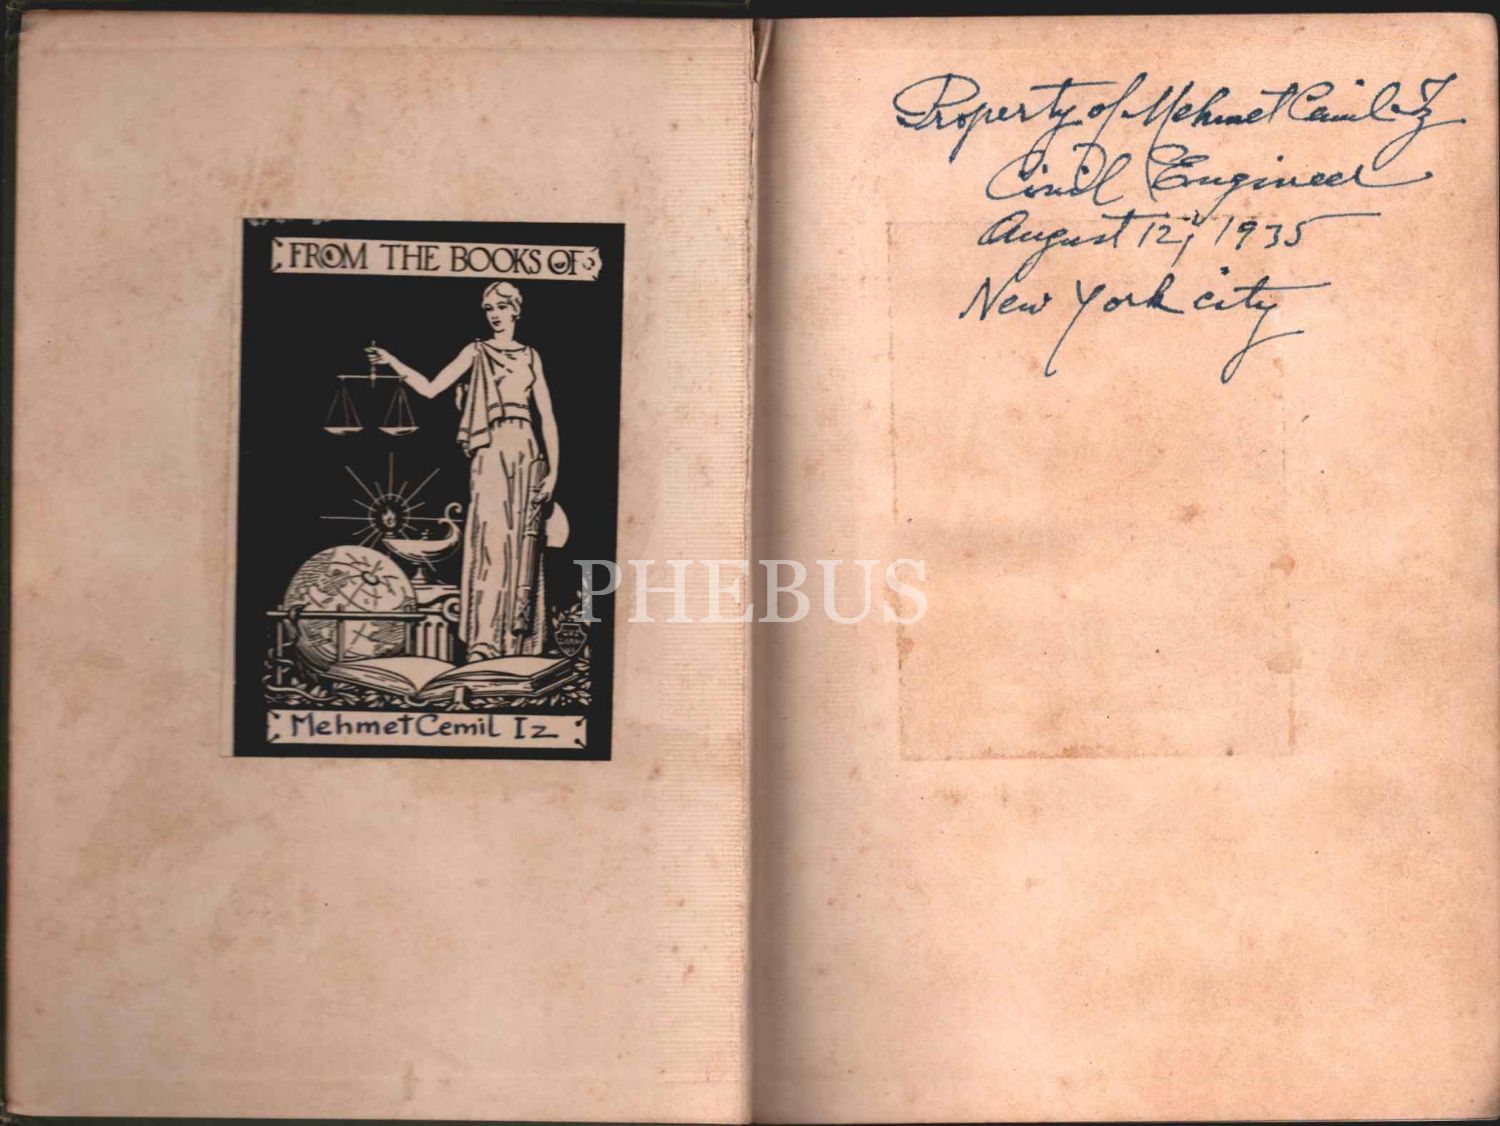 FROM THE BOOKS OF
Mehmet Cemil Iz
Property of Mehmet Cemil Iz
Civil Engineer
August 12, 1935
New York city
PHEBUS